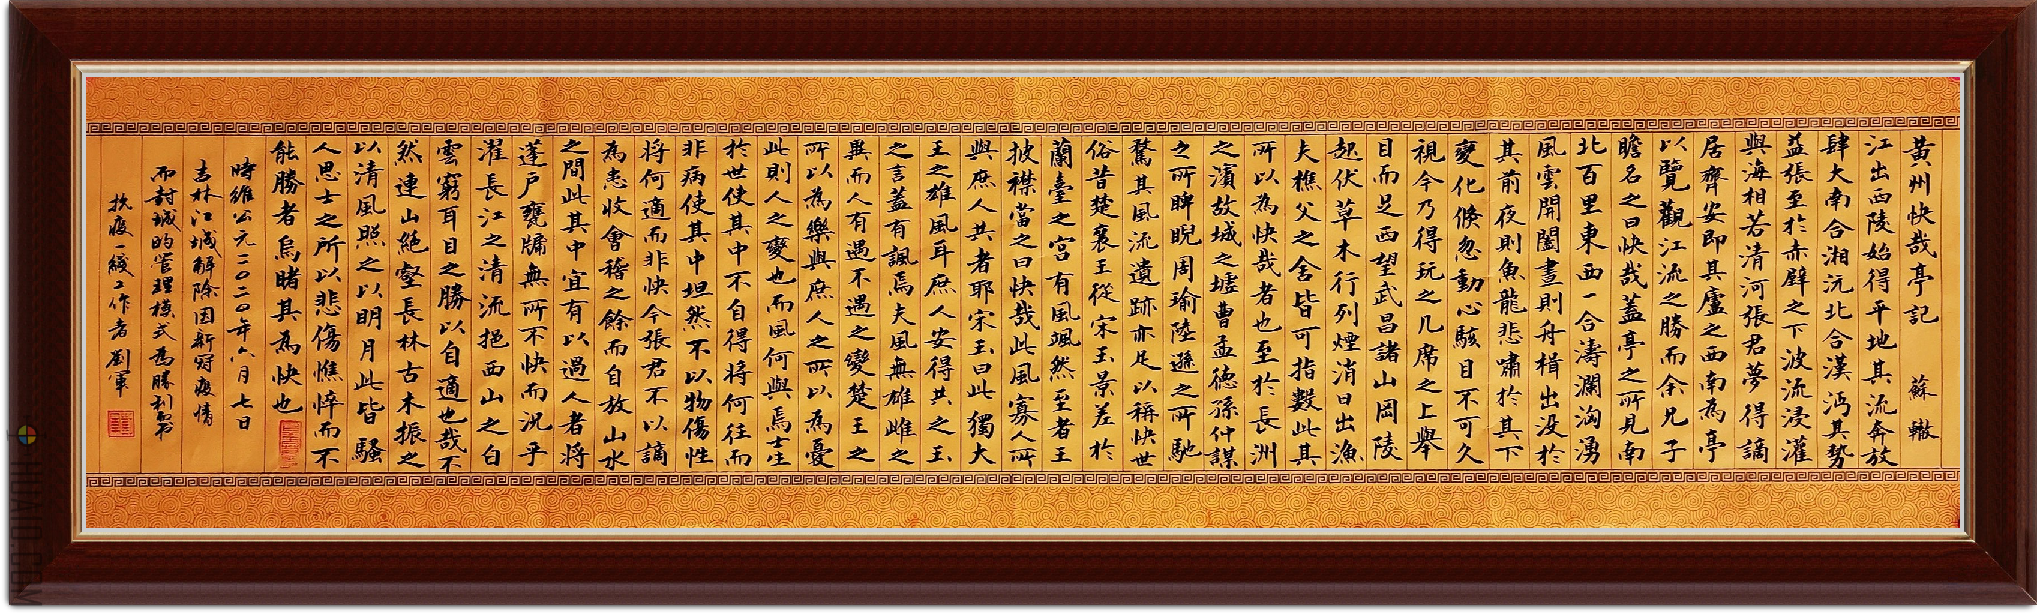 黃州快哉亭記 蘇轍
江出西陵始得平地其流奔放
肆大南合湘沅北合漢沔其勢
益張至於赤壁之下波流浸灌
與海相若清河張君夢得謫
居齊安即其廬之西南為亭
以覽觀江流之勝而余兄子
瞻名之曰快哉蓋亭之所見南
北百里東西一合濤瀾洶湧
風雲開闔晝則舟楫出沒於
其前夜則魚龍悲嘯於其下
變化倏忽動心駭目不可久
視今乃得玩之几席之上舉
目而足西望武昌諸山岡陵
起伏草木行列煙消日出漁
夫樵父之舍皆可指數此其
所以為快哉者也至於長洲
之濱故城之墟曹孟德孫仲謀
之所睥睨周瑜陸遜之所馳
騖其風流遺跡亦足以稱快世
俗昔楚襄王從宋玉景差於
蘭臺之宮有風颯然至者王
披襟當之曰快哉此風寡人所
與庶人共者耶宋玉曰此獨大
王之雄風耳庶人安得共之玉
之言蓋有諷焉夫風無雄雌之
異而人有遇不遇之變楚王之
所以為樂與庶人之所以為憂
此則人之變也而風何與焉士生
於世使其中不自得將何往而
非病使其中坦然不以物傷性
將何適而非快今張君不以謫
為患收會稽之餘而自放山水
之間此其中宜有以過人者將
蓬戶甕牖無所不快而況乎
濯長江之清流挹西山之白
雲窮耳目之勝以自適也哉不
然連山絕壑長林古木振之
以清風照之以明月此皆騷
人思士之所以悲傷憔悴而不
能勝者烏睹其為快也
時維公元二〇二〇年六月七日
吉林江城解除因新冠疫情
而封城的管理模式為勝利而书
抗疫一线工作者劉軍
HUAID.COM